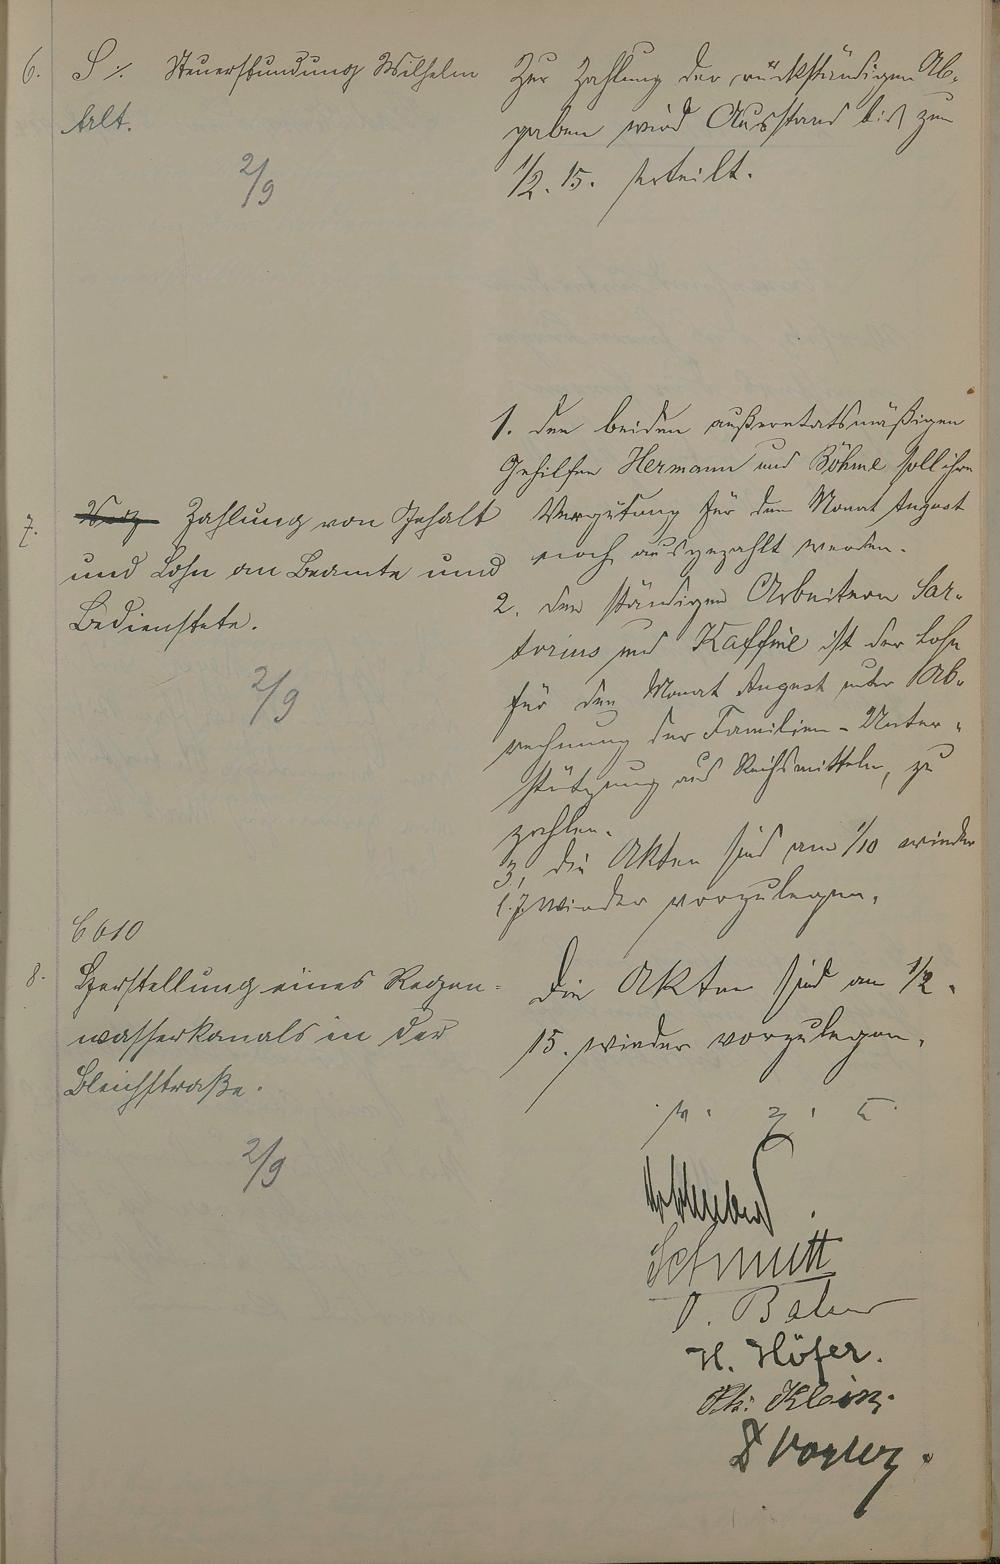 6. S ./. Steuerstundung Wilhelm
Alt.
2/9
Zur Zahlung der rückständigen Ab-
gaben wird Ausstand bis zum
1/2. 15. erteilt.
7. Zahlung von Gehalt
und Lohn an Beamte und
Bedienstete.
2/9
1. den beiden außeretatsmäßigen
Gehilfen Hermann und Böhme soll ihre
Vergütung für den Monat August
noch ausgezahlt werden.
2. den ständigen Arbeitern Sar-
torius und Kaffine ist der Lohn
für den Monat August unter Ab-
rechnung der Familien-Unter-
stützung aus Reichsmitteln, zu
zahlen.
3, die Akten sind am 1/10 wieder
l. J. wieder vorzulegen.
6610
8. Herstellung eines Regen-
wasserkanals in der
Bleichstraße.
2/9
Die Akten sind am 1/2.
15. wieder vorzulegen.
Schmitt
H. Höfer.
Ph. Klein.